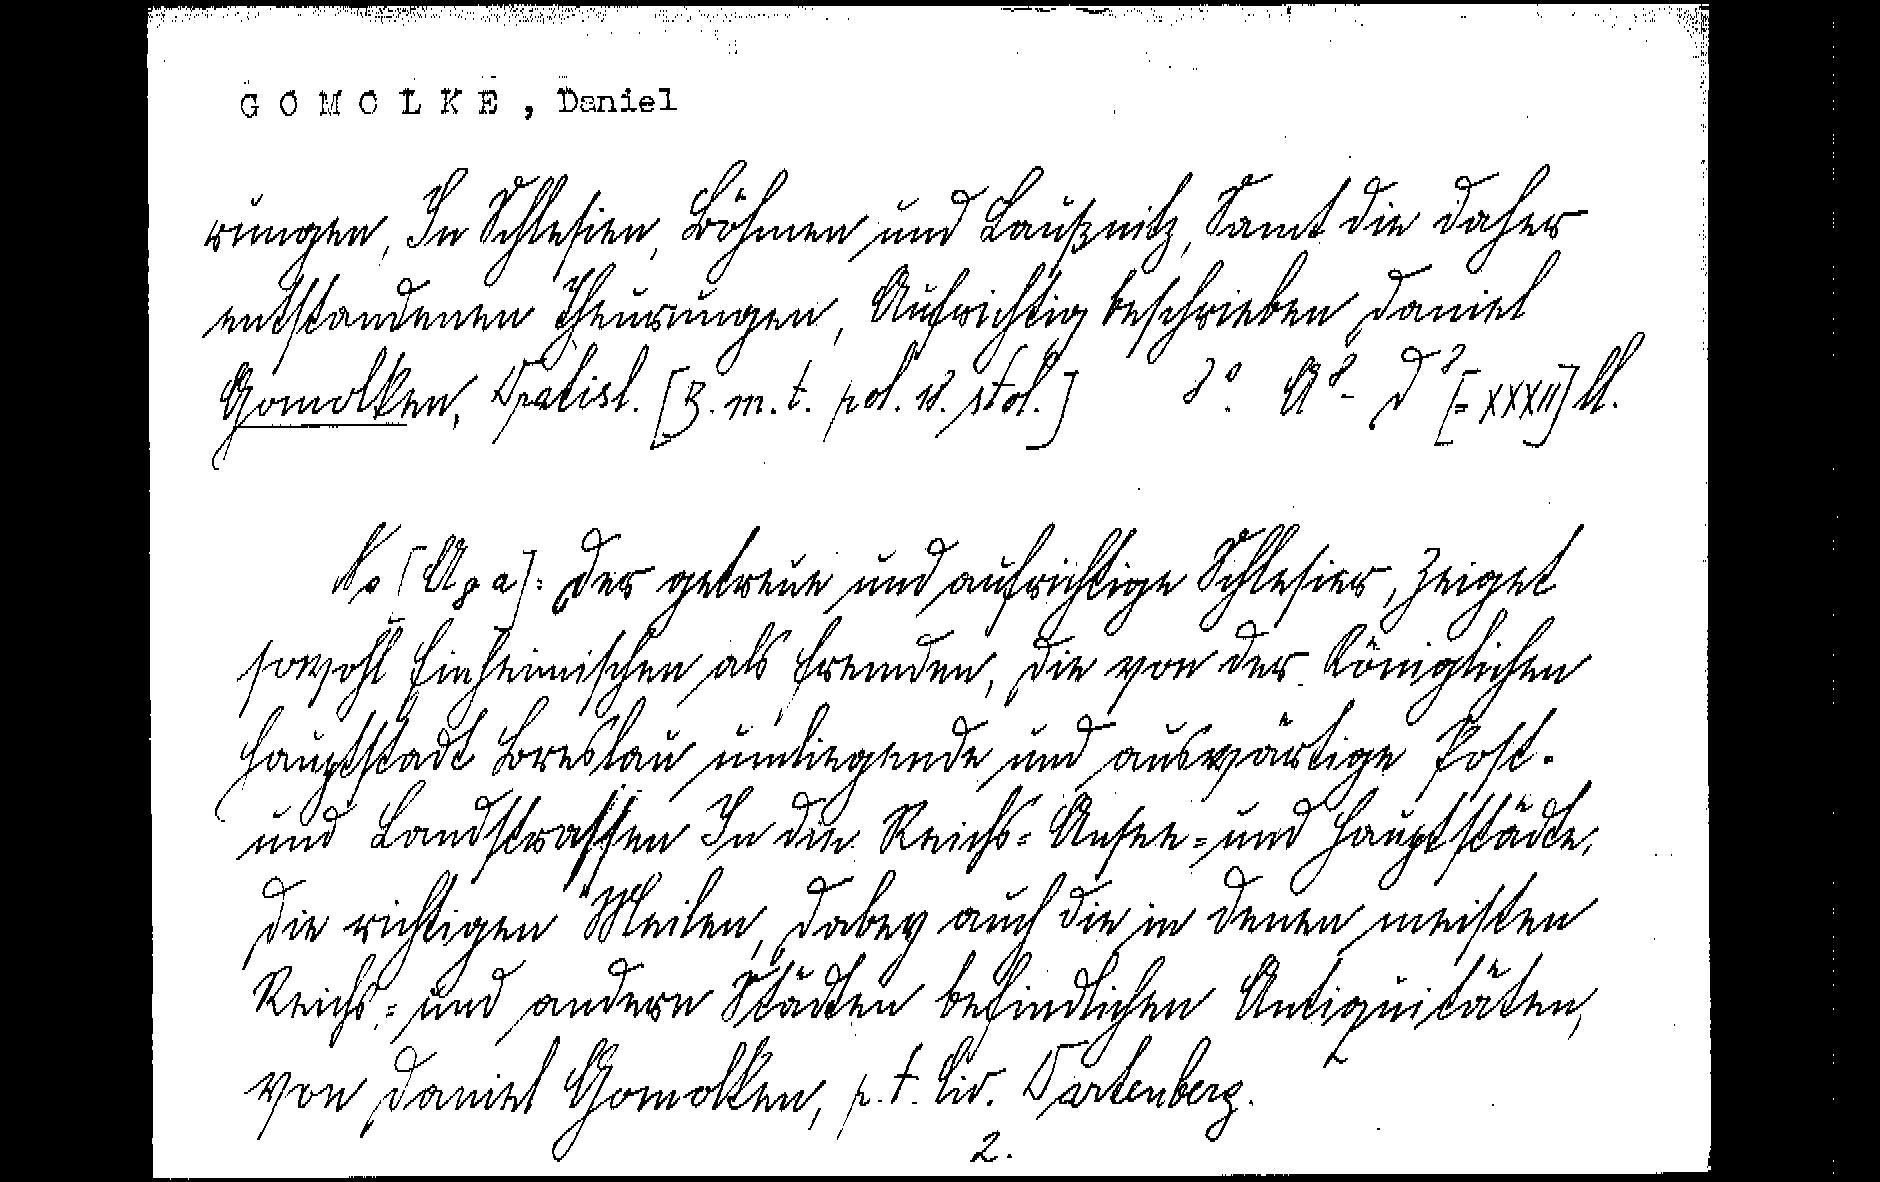 GOMOLKE, Daniel
rungen, In Schlesien, Böhmen und Laußnitz, Samt die daher
entstandenen Theurungen, Aufrichtig beschrieben Daniel
Gomolken, Vratisl. [B. m. t. pol. u. stol.] 8°. A⁸- D⁸ [= XXXII] Bl.
[A₂a]: Der getreue und aufrichtige Schlesier, Zeiget
sowohl Einheimischen als Fremden, Die von der Königlichen
Hauptstadt Breslau umliegende und auswärtige Post-
und Landstrassen In die Reichs= Ansee= und Hauptstädte,
Die richtigen Meilen, Dabey auch die in denen meisten
Reichs= und andern Städten befindlichen Antiquitäten,
von Daniel Gomolken, p. t. Civ. Wartenberg.
2.